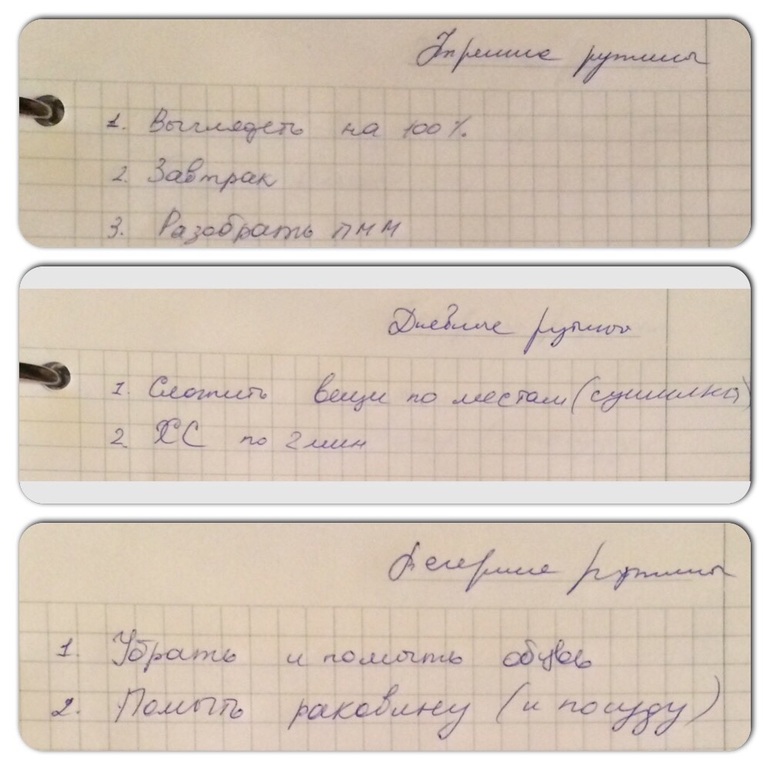 Утренние рутины
1. Выглядеть на 100%.
2. Завтрак
3. Разобрать ПММ
Дневные рутины
1. Сложить вещи по местам (сушилка)
2. ХС по 2 мин
Вечерние рутины
1. Убрать и помыть обувь
2. Помыть раковину (и посуду)